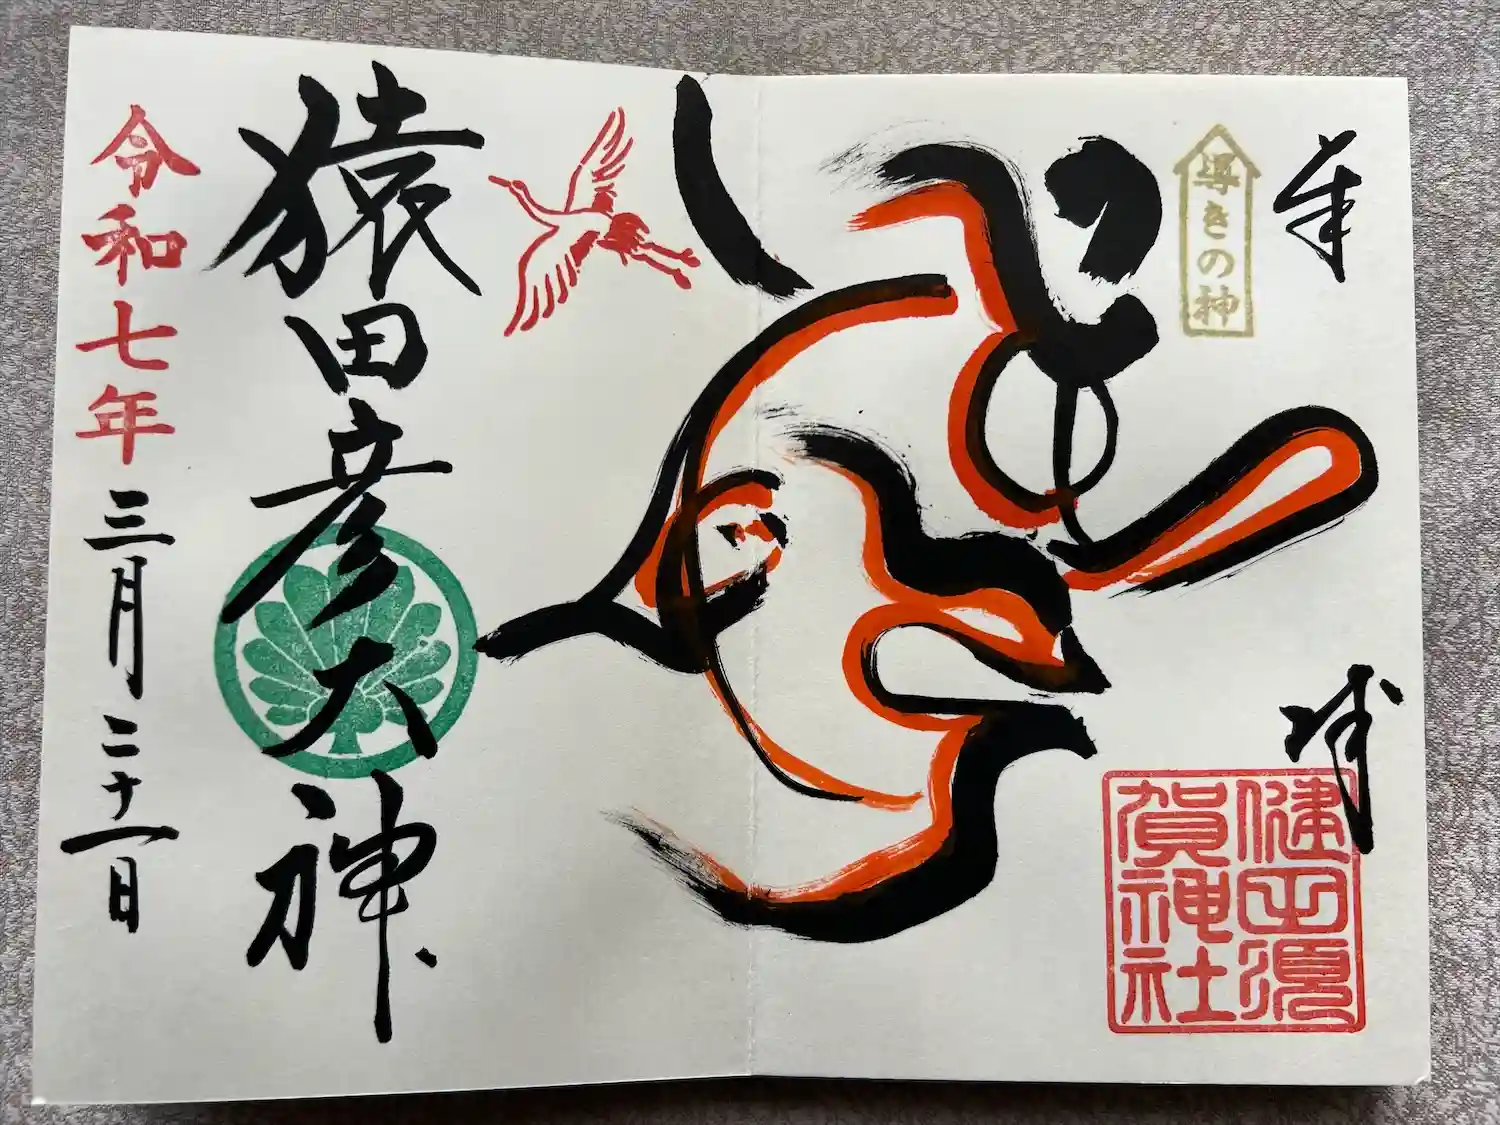 奉拝
導きの神
健田須
賀神社
猿田彦大神
令和七年三月二十一日